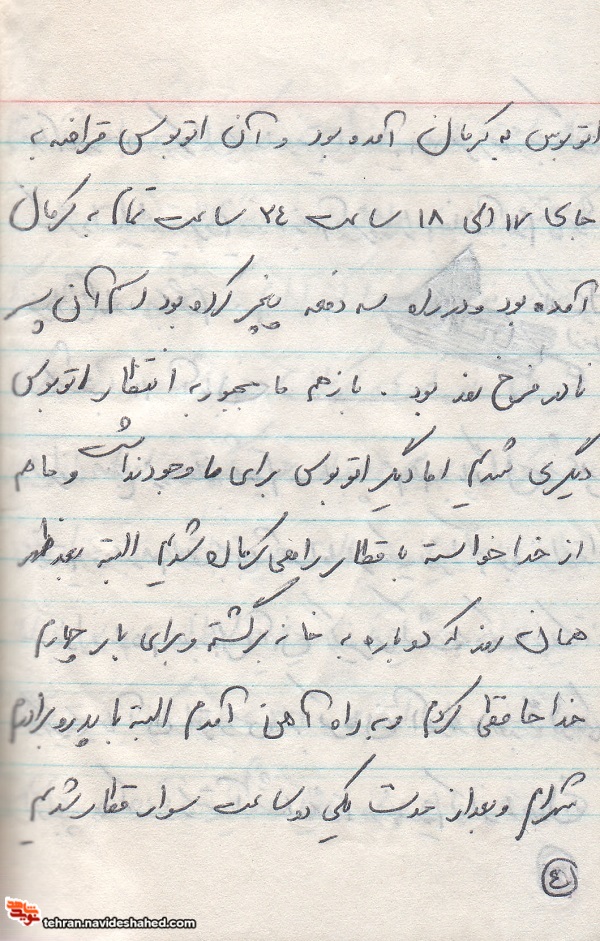 اتوبوس به کرمان آمده بود و آن اتوبوس قراضه به
جای ۱۷ الی ۱۸ ساعت ۲٤ ساعت تمام به کرمان
آمده بود و در راه سه دفعه پنچر کرده بود اسم آن پسر
نادر فرخ بود . باز هم ما مجبور به انتظار اتوبوس
دیگری شدیم اما دیگر اتوبوس برای ما وجود نداشت و ما هم
از خدا خواسته با قطار راهی کرمان شدیم البته بعدظهر
همان روز که دوباره به خانه برگشته و برای بار چهارم
خداحافظی کردم و به راه آهن آمدم البته با پدر و برادرم
شهرام و بعد از مدت یکی دو ساعت سوار قطار شدیم
٤
شاهد
نوید
tehran.navideshahed.com